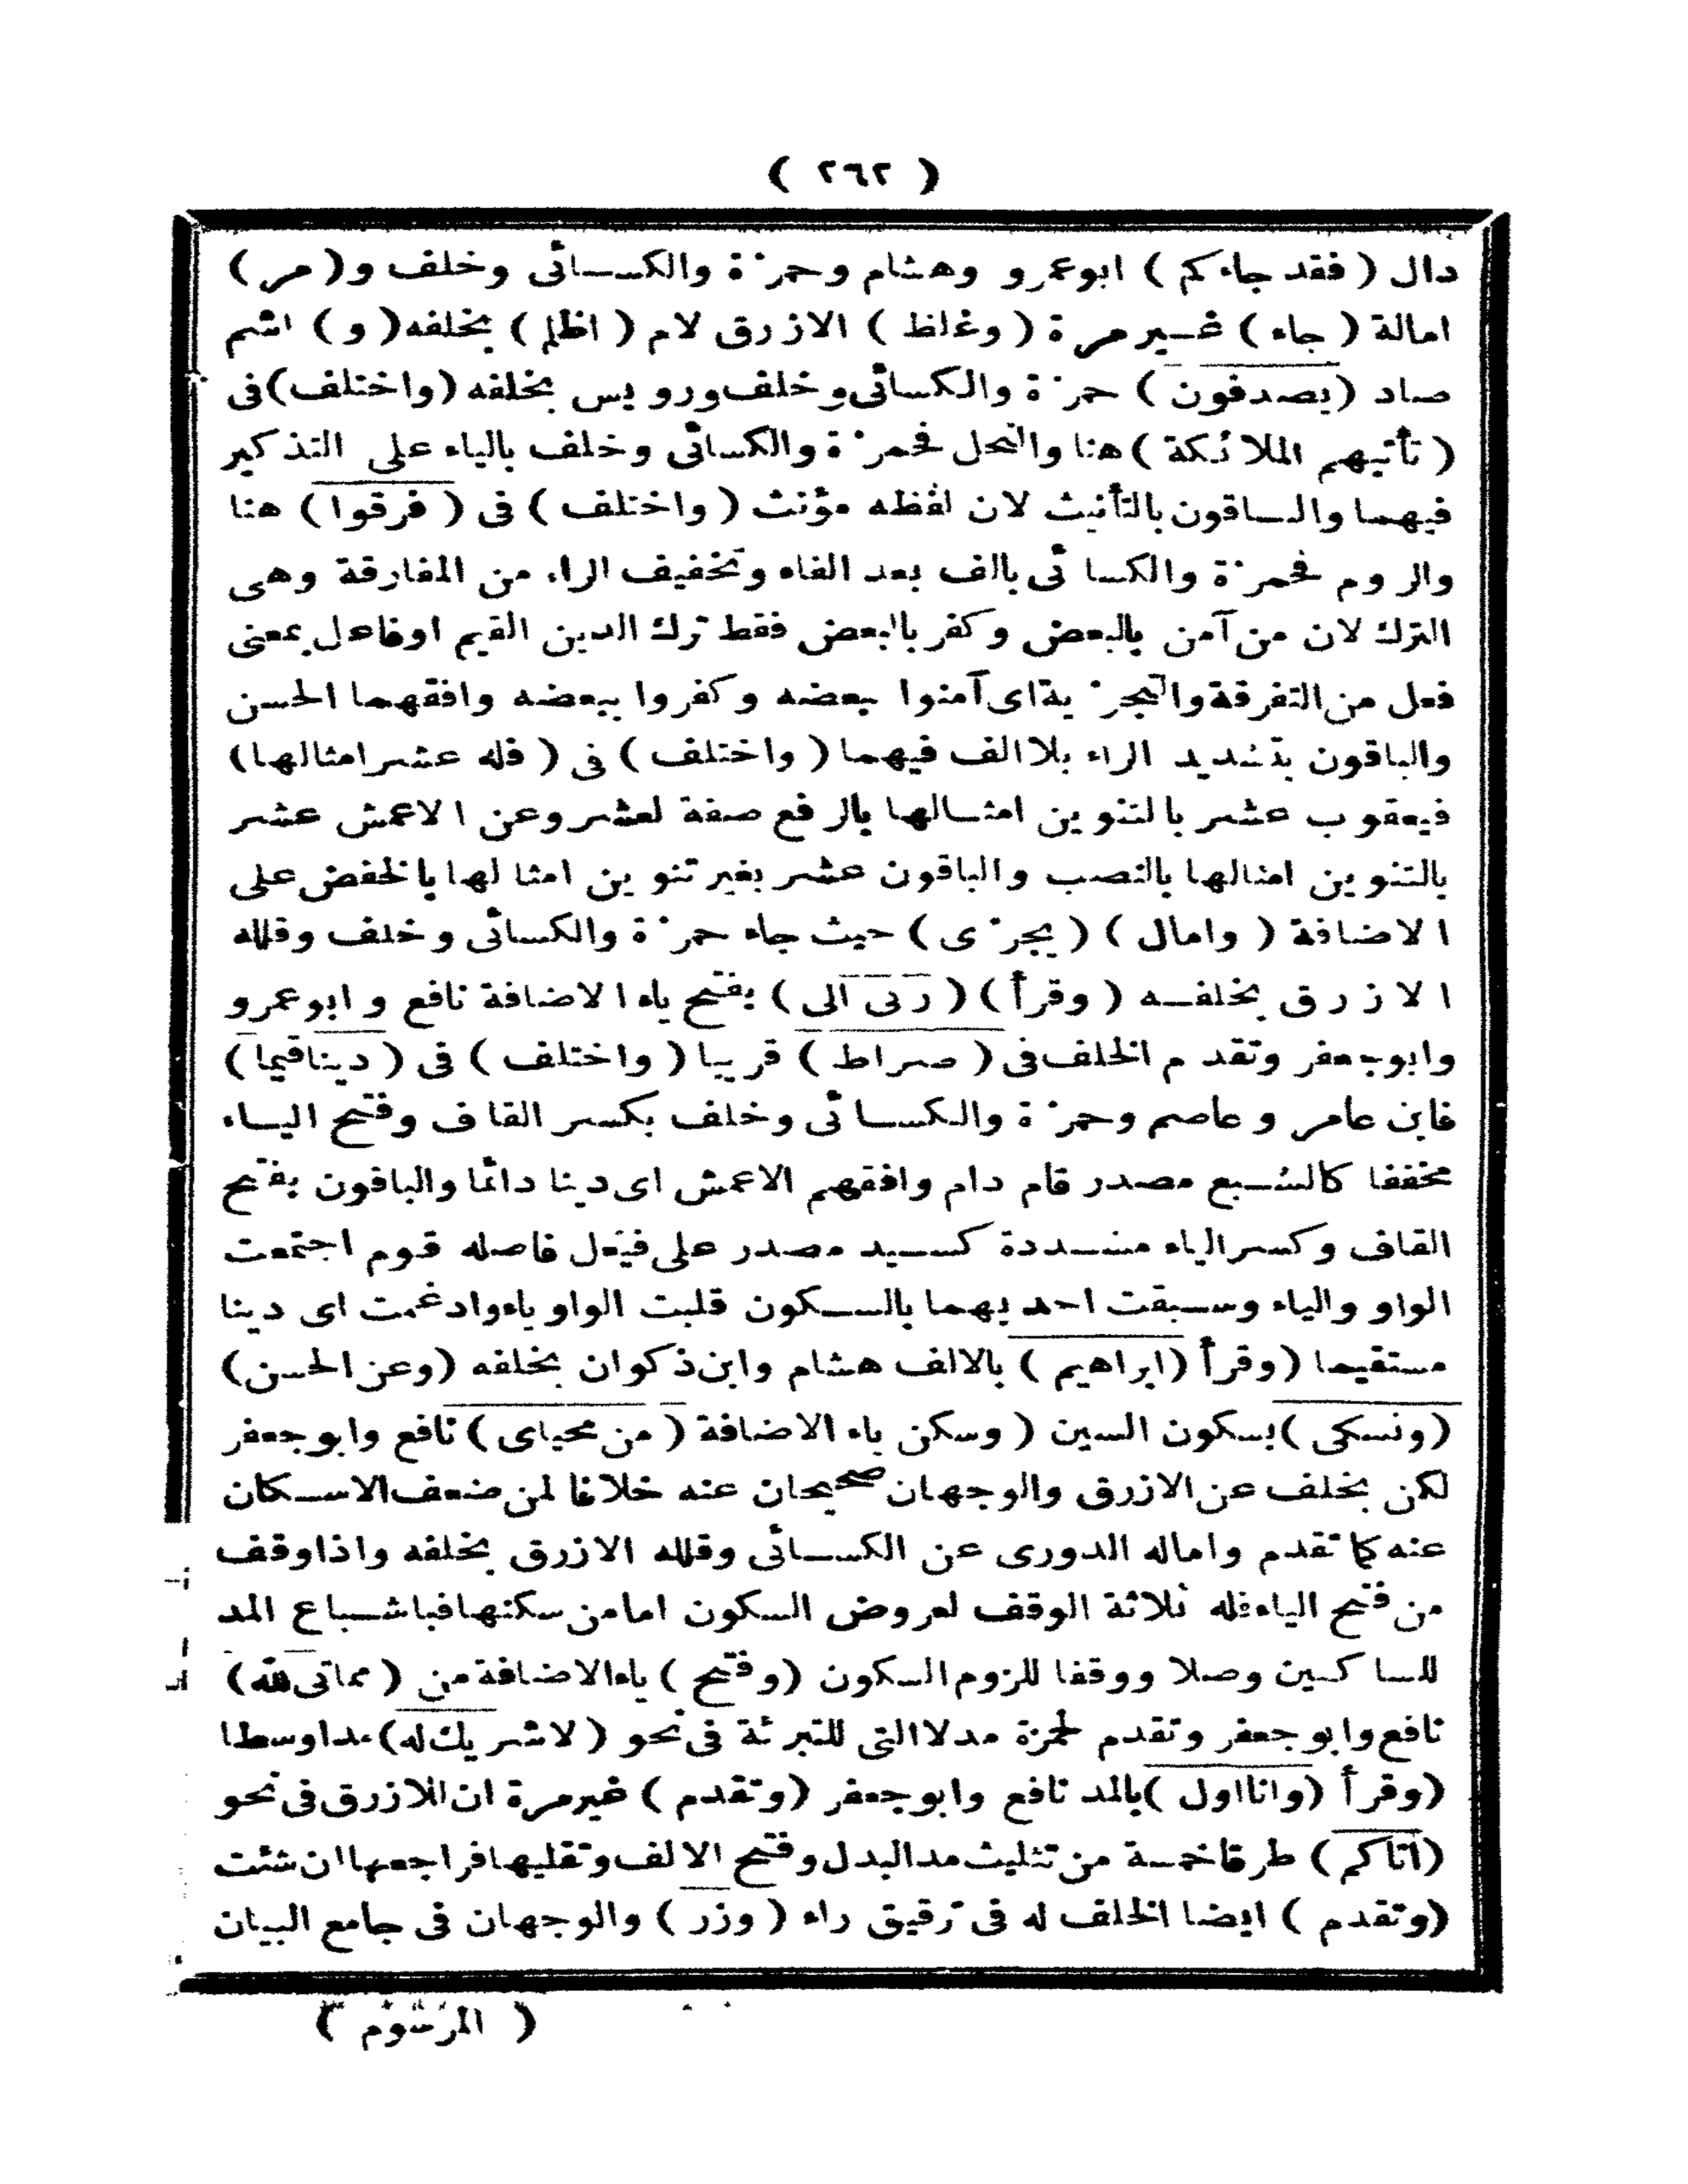 ( ٢٦٢ )
دال ( فقد جاءكم ) ابوعمرو وهشام وحمزة والكسائى وخلف و ( مر )
امالة ( جاء ) غير مرة ( وغلظ ) الازرق لام ( اظلم ) بخلفه ( و ) اشم
صاد ( يصدفون ) حمزة والكسائى وخلف ورويس بخلفه ( واختلف ) فى
( تأتيهم الملائكة ) هنا والنحل فحمزة والكسائى وخلف بالياء على التذكير
فيهما والباقون بالتأنيث لان لفظه مؤنث ( واختلف ) فى ( فرقوا ) هنا
والروم فحمزة والكسائى بالف بعد الفاء وتخفيف الراء من المفارقة وهى
الترك لان من آمن بالبعض وكفر بالبعض فقط ترك الدين القيم اوفاعل بمعنى
فعل من التفرقة والتجزية اى آمنوا ببعضه وكفروا ببعضه وافقهما الحسن
والباقون بتشديد الراء بلا الف فيهما ( واختلف ) فى ( فله عشر امثالها )
فيعقوب عشر بالتنوين امثالها بالرفع صفة لعشر وعن الاعمش عشر
بالتنوين امثالها بالنصب والباقون عشر بغير تنوين امثالها بالخفض على
الاضافة ( وامال ) ( يجزى ) حيث جاء حمزة والكسائى وخلف وقلله
الازرق بخلفه ( وقرأ ) ( ربى الى ) بفتح ياء الاضافة نافع وابوعمرو
وابوجعفر وتقدم الخلف فى ( صراط ) قريبا ( واختلف ) فى ( ديناقيما )
فابن عامر وعاصم وحمزة والكسائى وخلف بكسر القاف وفتح الياء
مخففا كالشبع مصدر قام دام وافقهم الاعمش اى دينا دائما والباقون بفتح
القاف وكسر الياء مشددة كسيد مصدر على فيعل فاصله قيوم اجتمعت
الواو والياء وسبقت احديهما بالسكون قلبت الواو ياء وادغمت اى دينا
مستقيما ( وقرأ ( ابراهيم ) بالالف هشام وابن ذكوان بخلفه ( وعن الحسن )
( ونسكى ) بسكون السين ( وسكن ياء الاضافة ( من محياى ) نافع وابوجعفر
لكن بخلف عن الازرق والوجهان صحيحان عنه خلافا لمن ضعف الاسكان
عنه كما تقدم واماله الدورى عن الكسائى وقلله الازرق بخلفه واذا وقف
من فتح الياء فله ثلاثة الوقف لعروض السكون امامن سكنها فباشباع المد
للساكنين وصلا ووقفا للزوم السكون ( وفتح ) ياء الاضافة من ( مماتى لله )
نافع وابوجعفر وتقدم لحمزة مد لا التى للتبرئة فى نحو ( لاشريك له ) مدا وسطا
( وقرأ ( وانا اول ) بالمد نافع وابوجعفر ( وتقدم ) غير مرة ان للازرق فى نحو
( آتاكم ) طرقا خمسة من تثليث مد البدل وفتح الالف وتقليها فراجعها ان شئت
( وتقدم ) ايضا الخلف له فى ترقيق راء ( وزر ) والوجهان فى جامع البيان
( المرسوم )